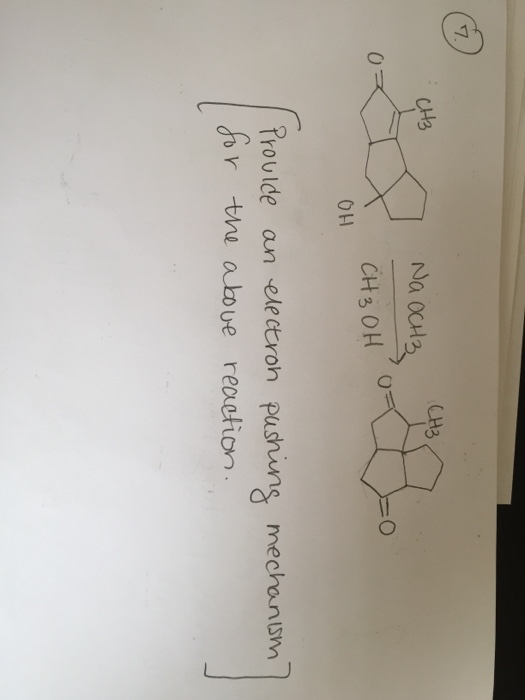 7.
CH3
O
OH
NaOCH3
CH3OH
CH3
O
O
Provide an electron pushing mechanism
for the above reaction.